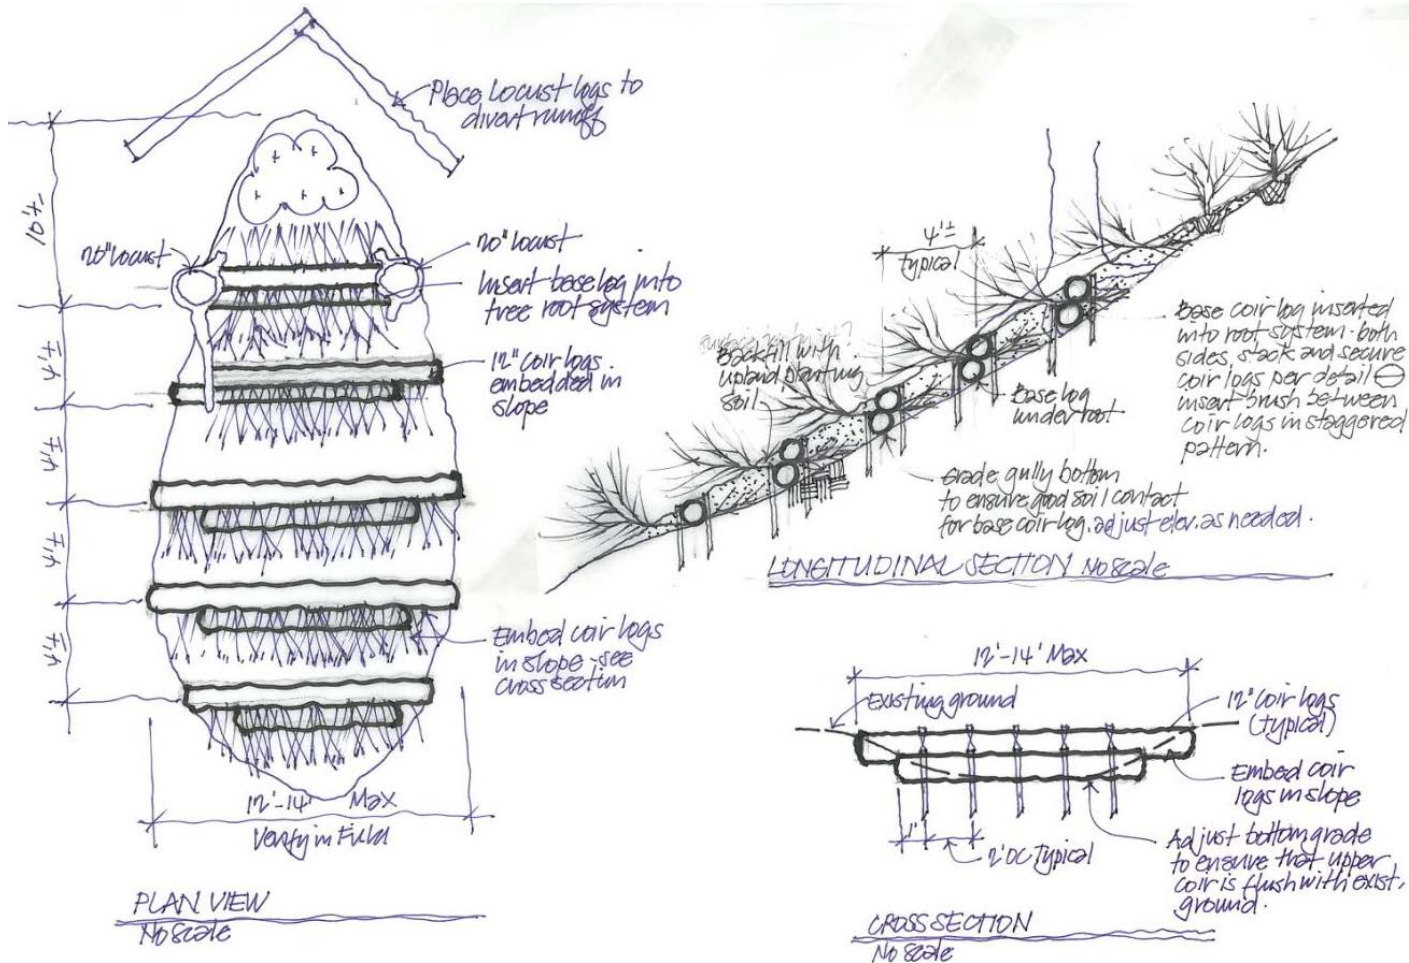 Place Locust logs to
divert runoff
10'±
20" locust
20" locust
Insert base log into
tree root system
4'±
12" Coir logs
embedded in
slope
4'±
4'±
4'±
Embed coir logs
in slope - see
cross section
12'-14' Max
Verify in Field
PLAN VIEW
No Scale
4'±
typical
Backfill with
upland planting
soil
Base log
under root
Base coir log inserted
into root system. both
sides, stack and secure
coir logs per detail
insert brush between
coir logs in staggered
pattern.
Grade gully bottom
to ensure good soil contact
for base coir log. adjust elev. as needed.
LONGITUDINAL SECTION No Scale
12'-14' Max
Existing ground
12" Coir logs
(typical)
Embed coir
logs in slope
1'
2' OC Typical
Adjust bottom grade
to ensure that upper
coir is flush with exist.
ground.
CROSS SECTION
No Scale